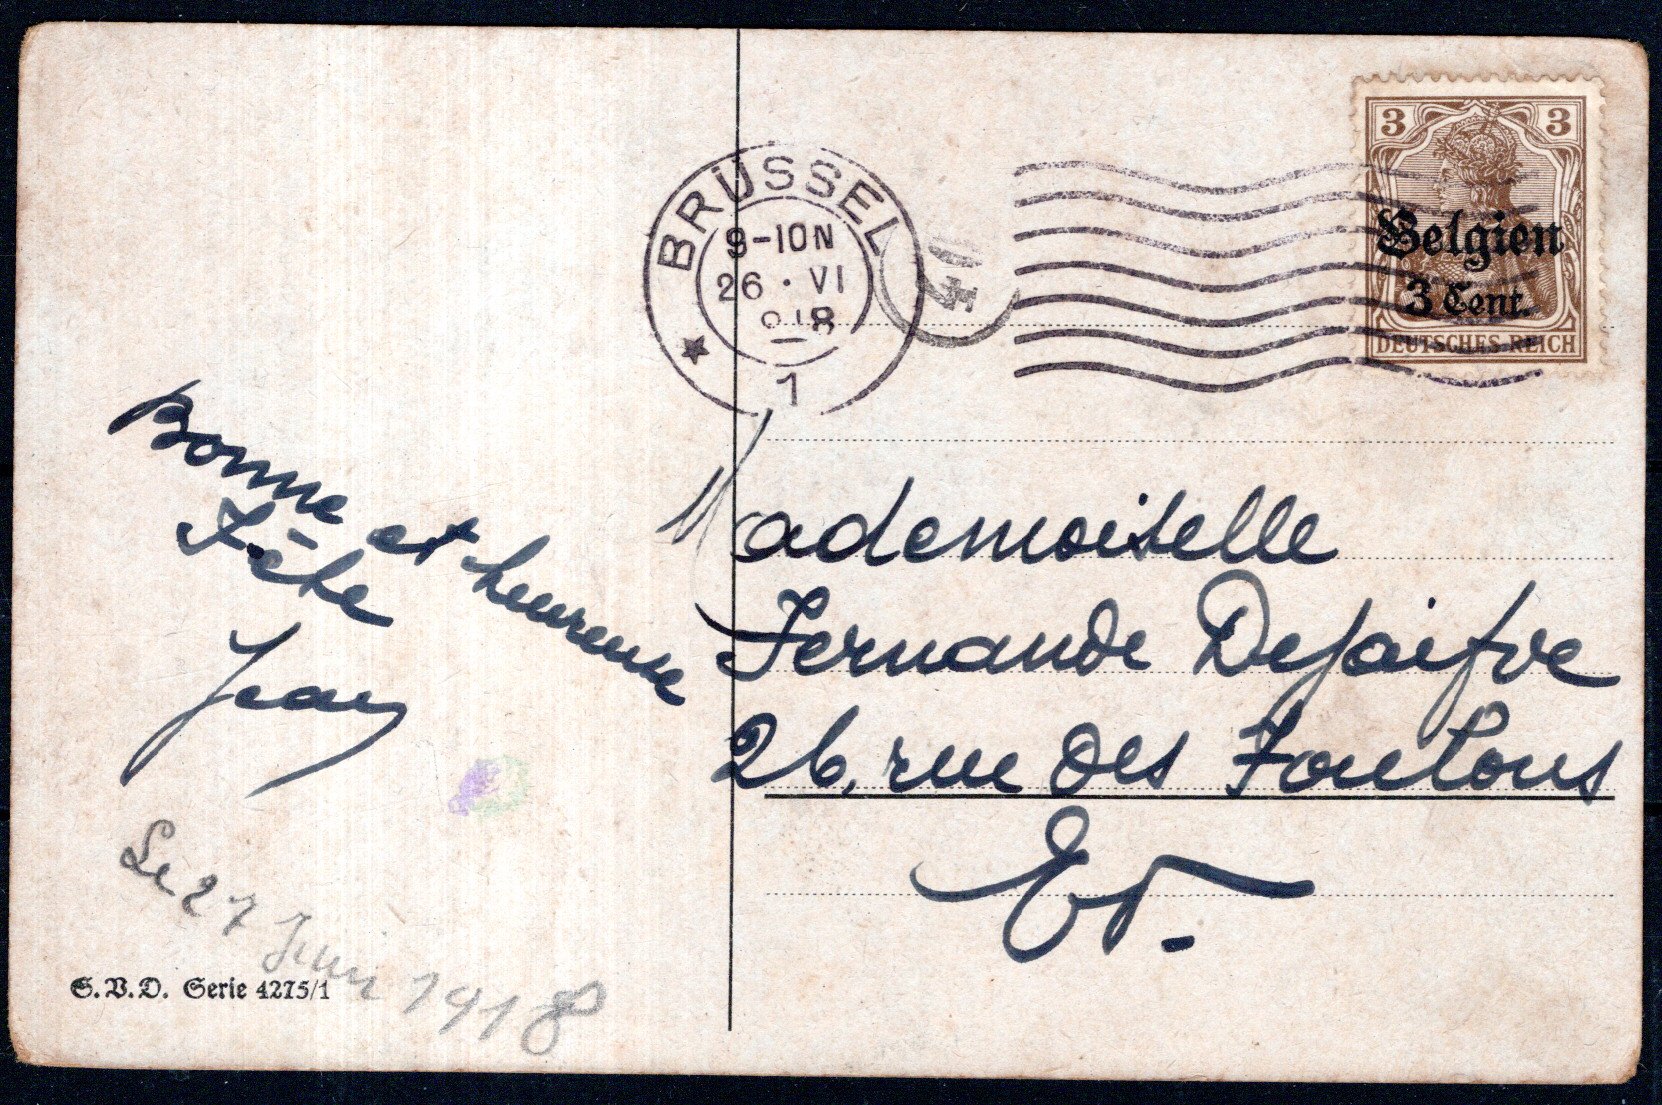 BRÜSSEL
9-10N
26 · VI
918
1
40
3 3
Belgien
3 Cent.
DEUTSCHES REICH
Bonne et heureuse
Fête
Jean
Le 27 Juin 1918
S.V.D. Serie 4275/1
Mademoiselle
Fernande Dejaifve
26, rue des Foulons